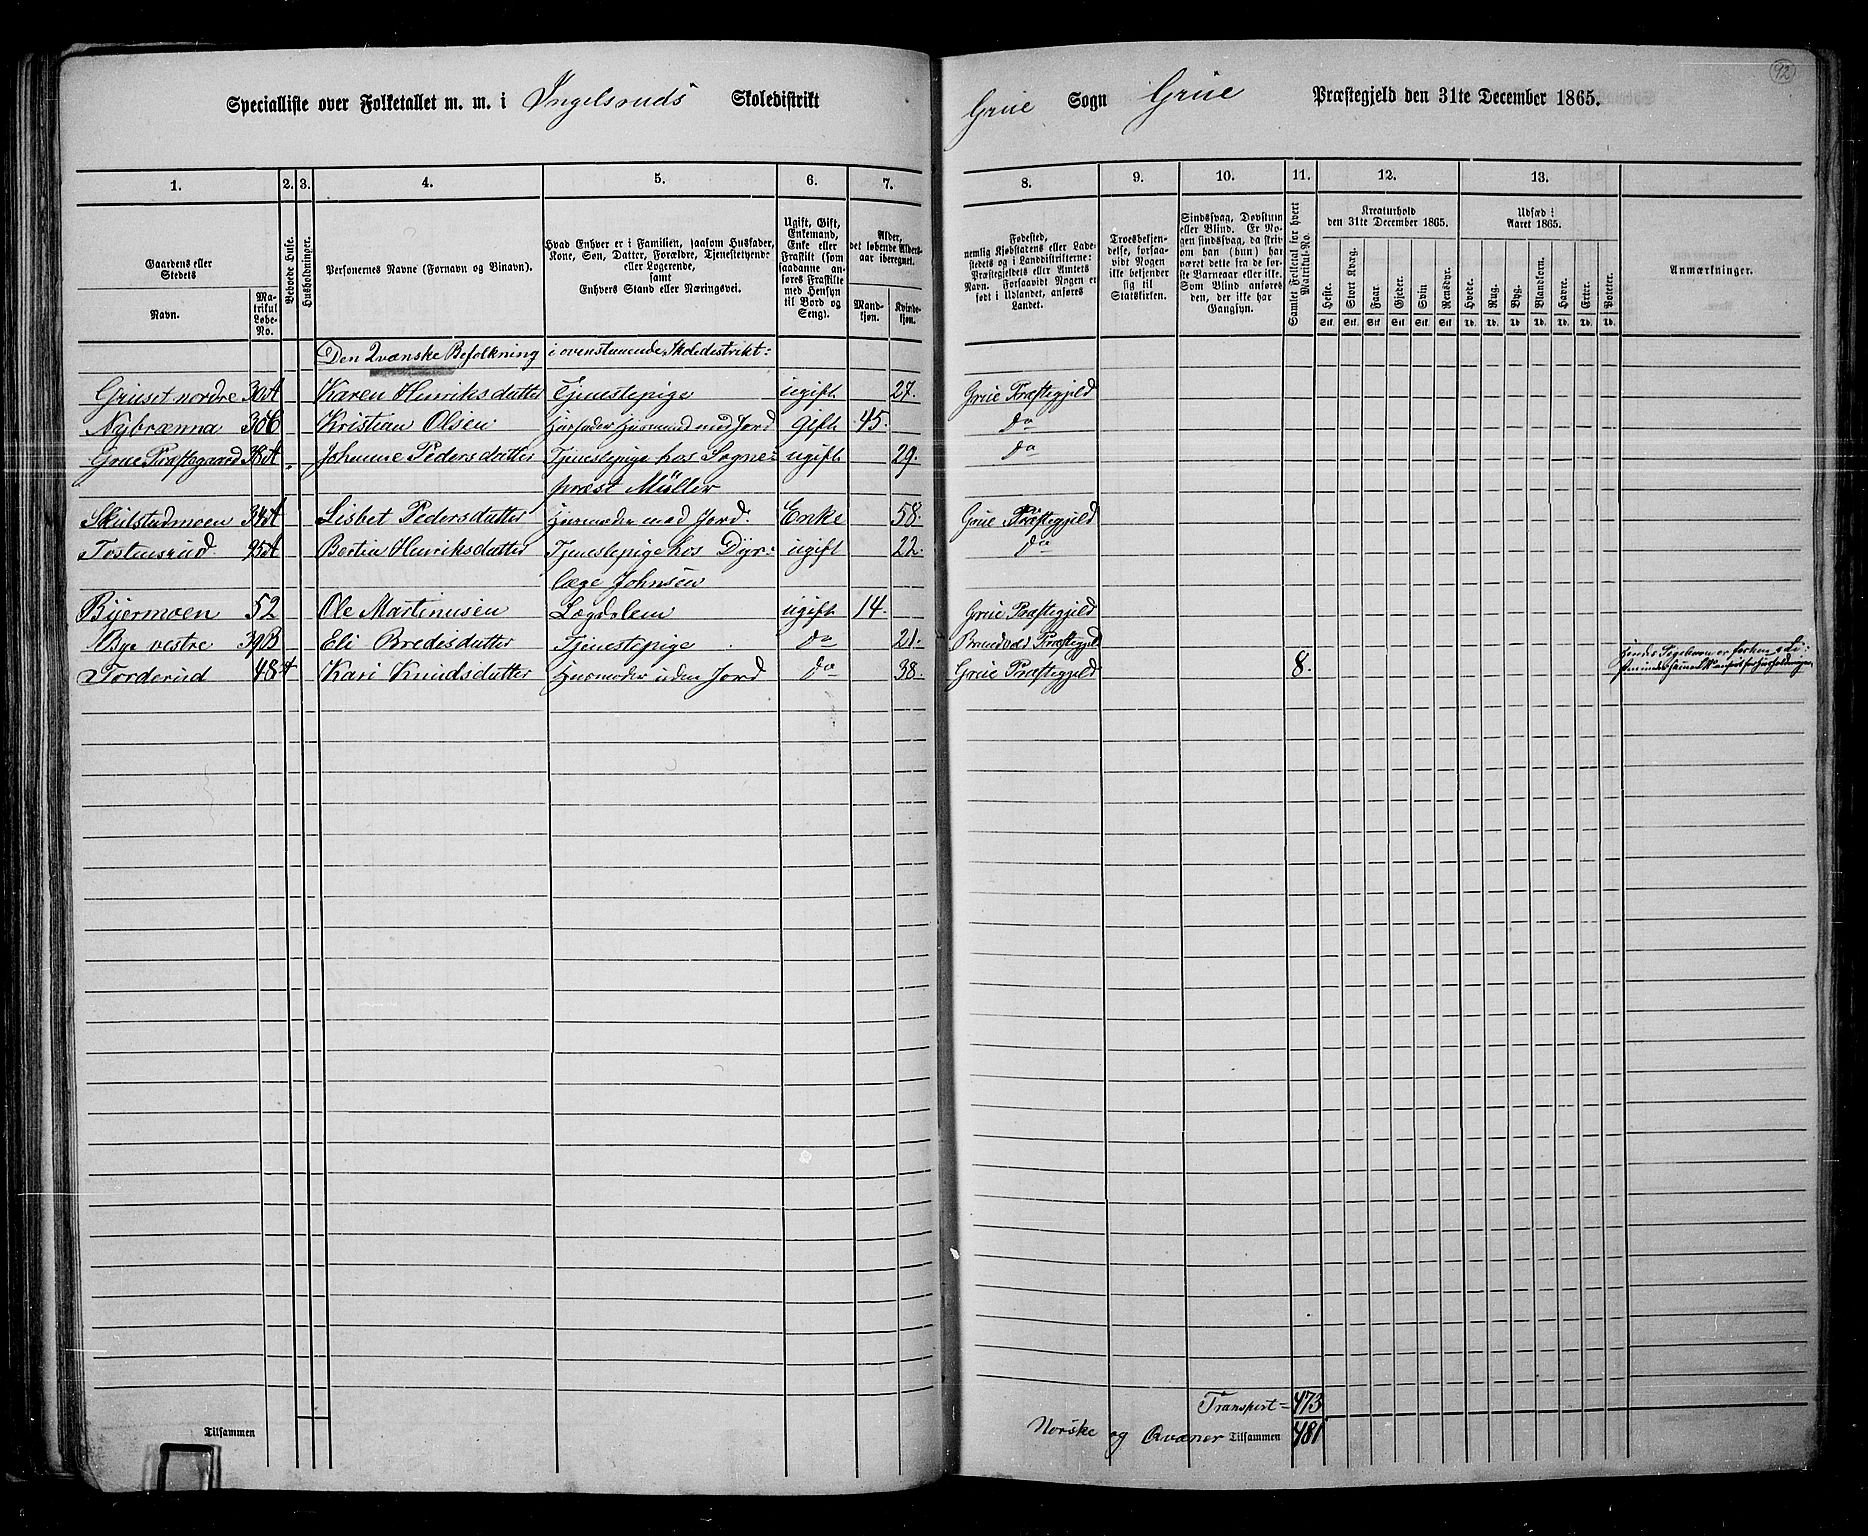 92
Specialliste over Folketallet m. m. i Ingelsruds Skoledistrikt Grue Sogn Grue Præstegjeld den 31te December 1865.
1. 2. 3. 4. 5. 6. 7. 8. 9. 10. 11. 12. 13.
Gaardens eller Stedets
Navn.
Matrikul Løbe-No.
Beboede Huse.
Husholdninger.
Personernes Navne (Fornavn og Binavn).
Hvad Enhver er i Familien, saasom Husfader, Kone, Søn, Datter, Forældre, Tjenestetyende eller Logerende, samt
Enhvers Stand eller Næringsvei.
Ugift, Gift, Enkemand, Enke eller Fraskilt (som saadanne anføres Fraskilte med Hensyn til Bord og Seng).
Alder, det løbende Aldersaar iberegnet.
Mandkjøn. Kvindekjøn.
Fødested, nemlig Kjøbstadens eller Ladestedets og i Landdistrikterne: Præstegjeldets eller Amtets Navn. Forsaavidt Nogen er født i Udlandet, anføres Landet.
Troesbekjendelse, forsaavidt Nogen ikke bekjender sig til Statskirken.
Sindssvag, Døvstum eller Blind. Er Nogen sindssvag, da skrives om han (hun) har været dette fra de første Barneaar eller ikke. Som Blind anføres den, der ikke har Gangsyn.
Samlet Folketal for hvert Matrikul-No.
Kreaturhold den 31te December 1865.
Heste. Stort Kvæg. Faar. Gjeder. Svin. Rensdyr.
Stk. Stk. Stk. Stk. Stk. Stk.
Udsæd i Aaret 1865.
Hvede. Rug. Byg. Blandkorn. Havre. Erter. Poteter.
Td. Td. Td. Td. Td. Td. Td.
Anmærkninger.
Den Qvænske Befolkning i ovenstaaende Skoledistrikt:
Gruset nordre 30A Karen Henriksdatter Tjenestepige ugift 27. Grue Præstegjeld
Nybrænna 30C Kristian Olsen Husfader Husmand med Jord Gift 45. do
Grue Præstegaard 38A Johanne Pedersdatter Tjenestepige hos Sogne- ugift 29. do
præst Müller
Skulstadmoen 34A Lisbet Pedersdatter Husmoder med Jord. Enke 58. Grue Præstegjeld
Tostensrud 45A Bertia Henriksdatter Tjenestepige hos Dyr- ugift 22. do
læge Johnsen
Byermoen 52 Ole Martinusen Lægdslem ugift 14. Grue Præstegjeld
Bye vestre 39B Eli Bredisdatter Tjenestepige do 21. Brandvods Præstegjeld
Torderud 48A Kari Knudsdatter Husmoder uden Jord do 38. Grue Præstegjeld 8.
Transport = 473
Tilsammen
Norske og Qvæner Tilsammen 481